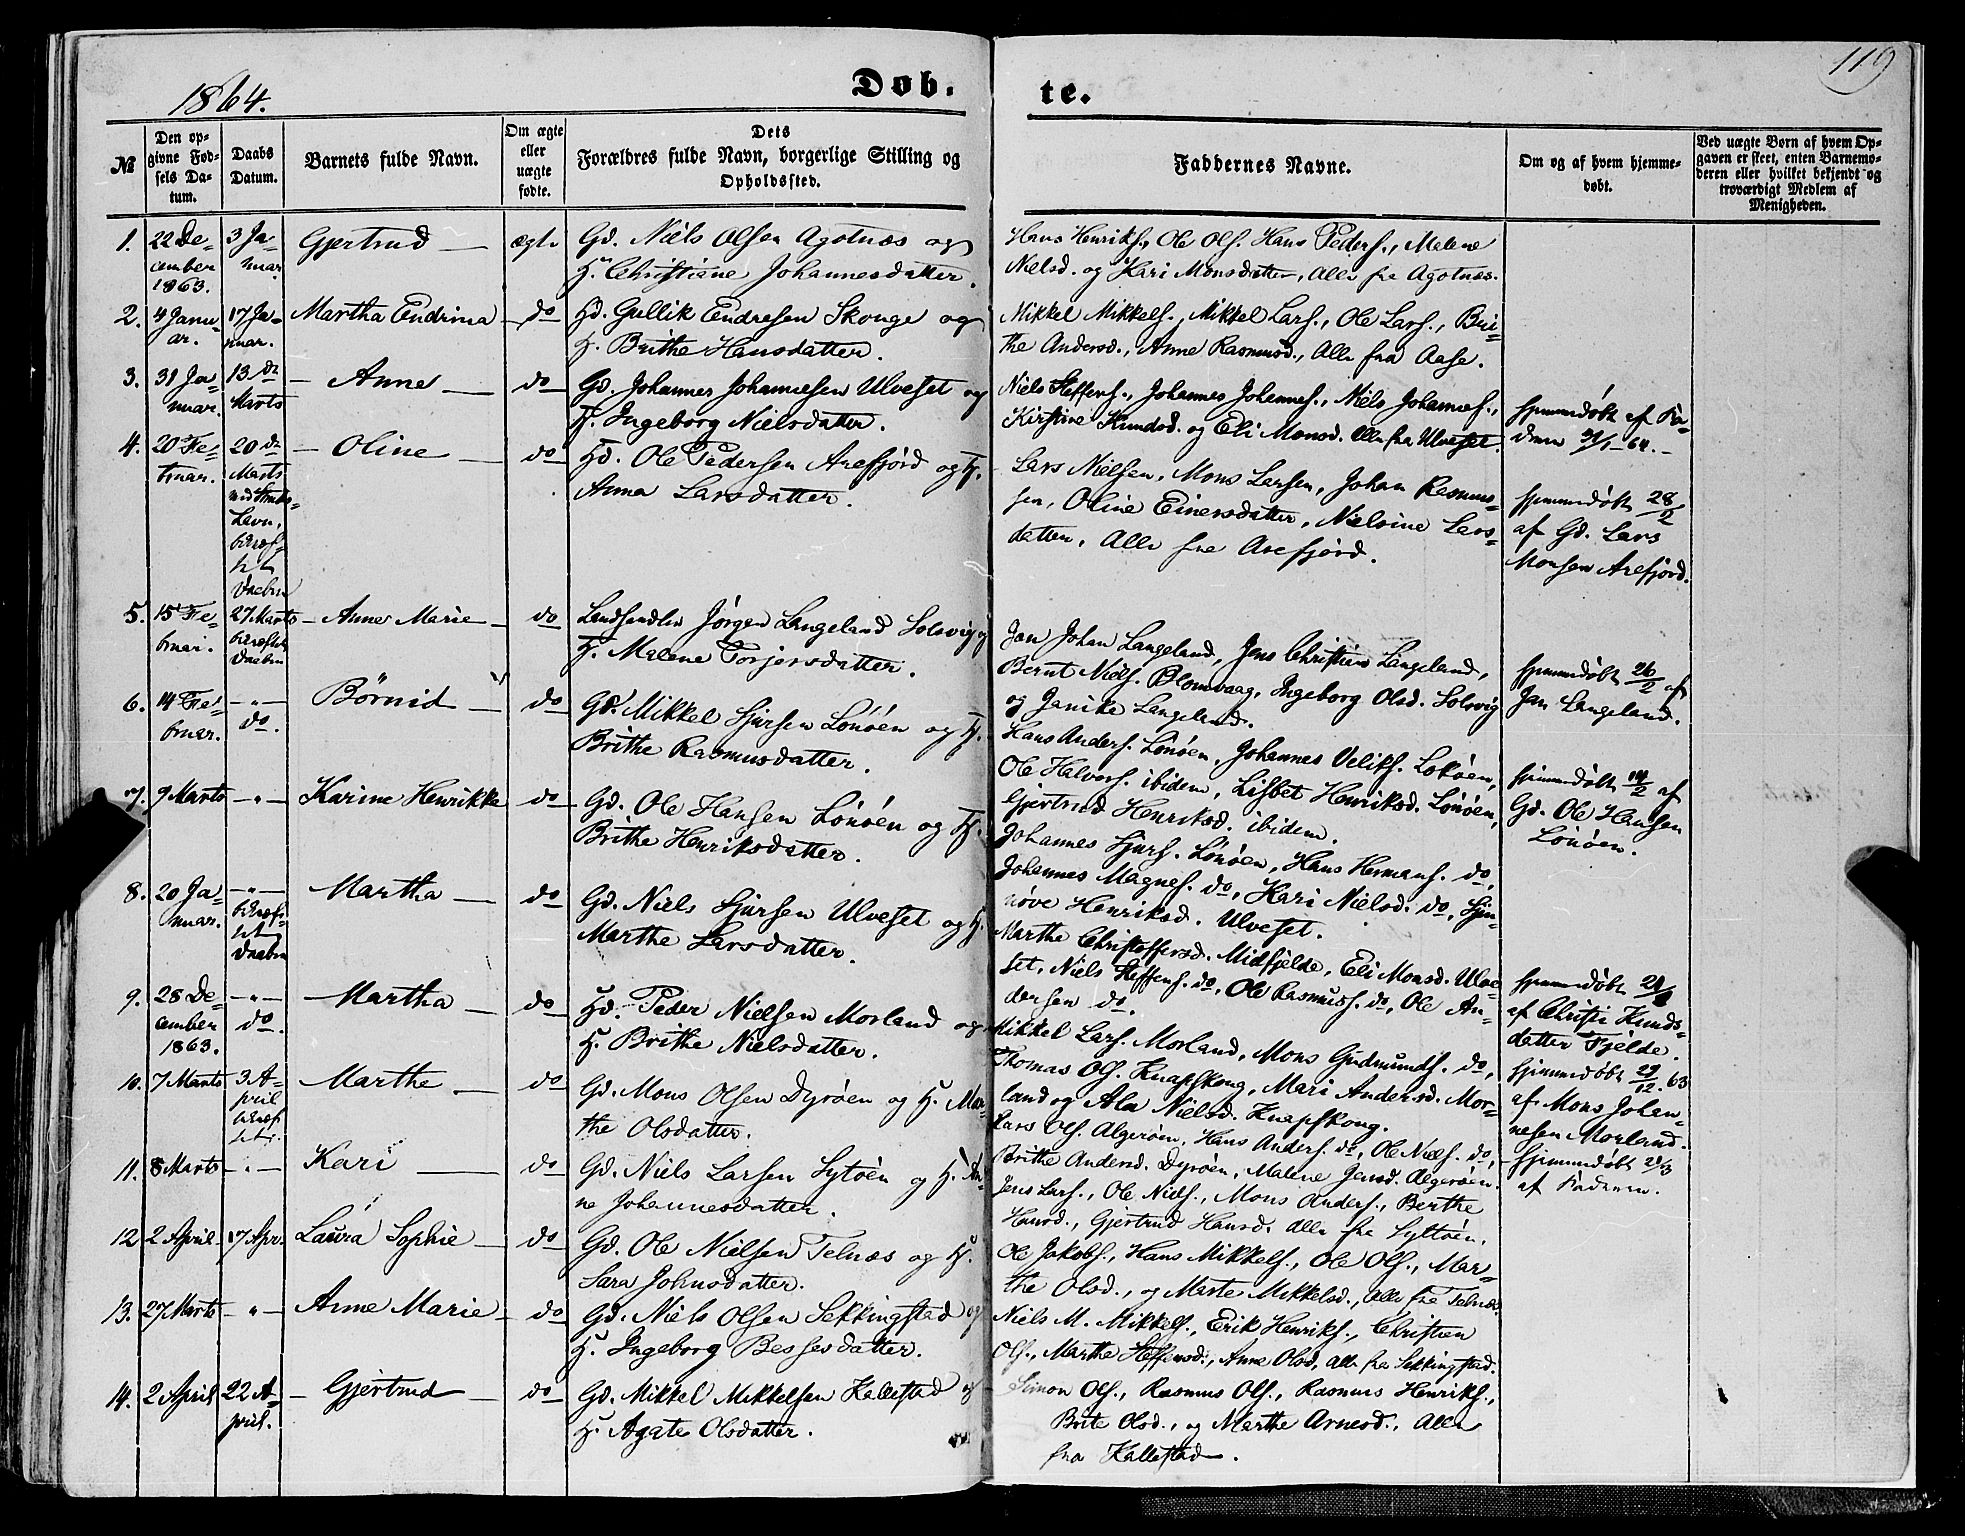 1864.
Døb-
te.
119
№
Den op-
givne Fød-
sels Da-
tum.
Daabs
Datum.
Barnets fulde Navn.
Om ægte
eller
uægte
fødte.
Dets
Forældres fulde Navn, borgerlige Stilling og
Opholdssted.
Faddernes Navne.
Om og af hvem hjemme-
døbt.
Ved uægte Børn af hvem Op-
gaven er skeet, enten Barnemo-
deren eller hvilket bekjendt og
troværdigt Medlem af
Menigheden.
1.
22 De-
cember
1863.
3 Ja-
nuar.
Gjertrud
ægte
Gd. Niels Olsen Agotnæs og
H. Christiane Johannesdatter.
Hans Henriks., Ole Ols. Hans Peders., Malene
Nielsd. og Kari Monsdatter, Alle fra Agotnæs.
2.
4 Janu-
ar.
17 Ja-
nuar.
Martha Endrina
do
Hd. Gullik Endresen Skoge og
H. Brithe Hansdatter.
Mikkel Mikkels., Mikkel Lars., Ole Lars., Bri-
the Andersd., Anne Rasmusd., Alle fra Aase.
3.
31 Ja-
nuar.
13 de
Marts
Anne
do
Gd. Johannes Johannesen Ulveset og
H. Ingeborg Nielsdatter.
Niels Steffens., Johannes Johannes., Niels Johannes.,
Kirstine Knudsd. og Eli Monsd. Alle fra Ulveset.
Hjemmedøbt af Fa-
deren 31/1-64.
4.
20 Fe-
bruar.
20 de
Marts
Oline
do
Hd. Ole Pedersen Arefjord og H.
Anna Larsdatter.
Lars Nielsen, Mons Larsen, Johan Rasmus-
sen, Oline Einersdatter, Nielsine Lars-
datter, Alle fra Arefjord.
Hjemmedøbt 28/2
af Gd. Lars
Monsen Arefjord.
5.
15 Fe-
bruar.
27 Marts
Anne Marie
do
Landhandler Jørgen Langeland Solsvig og
H. Malene Torjersdatter.
Jan Johan Langeland, Jens Christian Langeland,
Bernt Niels. Blomvaag, Ingeborg Olsd. Solsvig
og Janike Langeland.
Hjemmedøbt 26/2 af
Jan Langeland.
6.
14 Fe-
bruar.
-"-
do.
Børnid
do
Gd. Mikkel Sjursen Lønøen og H.
Brithe Rasmusdatter.
Hans Anders. Lønøen, Johannes Veliks. Lokøen,
Ole Halvors. ibidem, Lisbet Henriksd. Lønøen,
Gjertrud Henriksd. ibidem.
Hjemmedøbt 14/2 af
Gd. Ole Hansen
Lønøen.
7.
9 Marts
-"-
Karine Henrikke
do
Gd. Ole Hansen Lønøen og H.
Brithe Henriksdatter.
Johannes Sjurs. Lønøen, Hans Hermans. do,
Johannes Magnes. do, Kari Nielsd. do, Syn-
nøve Henriksd. Ulveset.
8.
20 Ja-
nuar.
-"-
Martha
do
Gd. Niels Sjursen Ulveset og H.
Marthe Larsdatter.
Marthe Christoffersd. Midfjelde, Eli Monsd. Ulve-
set, Niels Steffens. do, Ole Rasmuss. do, Ole An-
dersen do.
Hjemmedøbt
af Christi Knuds-
datter Fjelde.
9.
28 De-
cember
1863.
-"-
do.
Martha
do
Hd. Peder Nielsen Morland og
H. Brithe Nielsdatter.
Mikkel Lars. Morland, Mons Gudmunds. do,
Thomas Ols. Knapskog, Mari Andersd. Mor-
land og Ala Nielsd. Knapskog.
Hjemmedøbt 29/12. 63
af Mons Johan-
nesen Morland.
10.
7 Marts
3 A-
pril
Marthe
do
Gd. Mons Olsen Dyrøen og H. Mar-
the Olsdatter.
Lars Ols. Algerøen, Hans Anders. do, Ole Niels. do,
Brithe Andersd. Dyrøen, Malene Jensd. Algerøen.
Hjemmedøbt 21/3
af Faderen.
11.
8 Marts
-"-
Kari
do
Gd. Niels Larsen Syltøen og H. An-
ne Johannesdatter.
Jens Lars., Ole Niels., Mons Anders., Berthe
Hansd., Gjertrud Hansd. Alle fra Syltøen.
12
2 April
17 Apr.
Laura Sophie
do
Gd. Ole Nielsen Telnæs og H.
Sara Johnsdatter.
Ole Jakobs., Hans Mikkels., Ole Ols., Mar-
the Olsd., og Marte Mikkelsd., Alle fra Telnæs.
13.
27 Marts
"
Anne Marie
do
Gd. Niels Olsen Sekkingstad og
H. Ingeborg Bessesdatter.
Niels M. Mikkels., Erik Henriks., Christen
Ols., Marthe Steffensd., Anne Olsd, Alle fra Sekkingstad.
14.
2 April
22 A-
pril.
Gjertrud
do
Gd. Mikkel Mikkelsen Kallestad og
H. Agate Olsdatter.
Simon Ols., Rasmus Ols., Rasmus Henriks.,
Brite Olsd., og Marthe Arnesd., Alle
fra Kallestad.